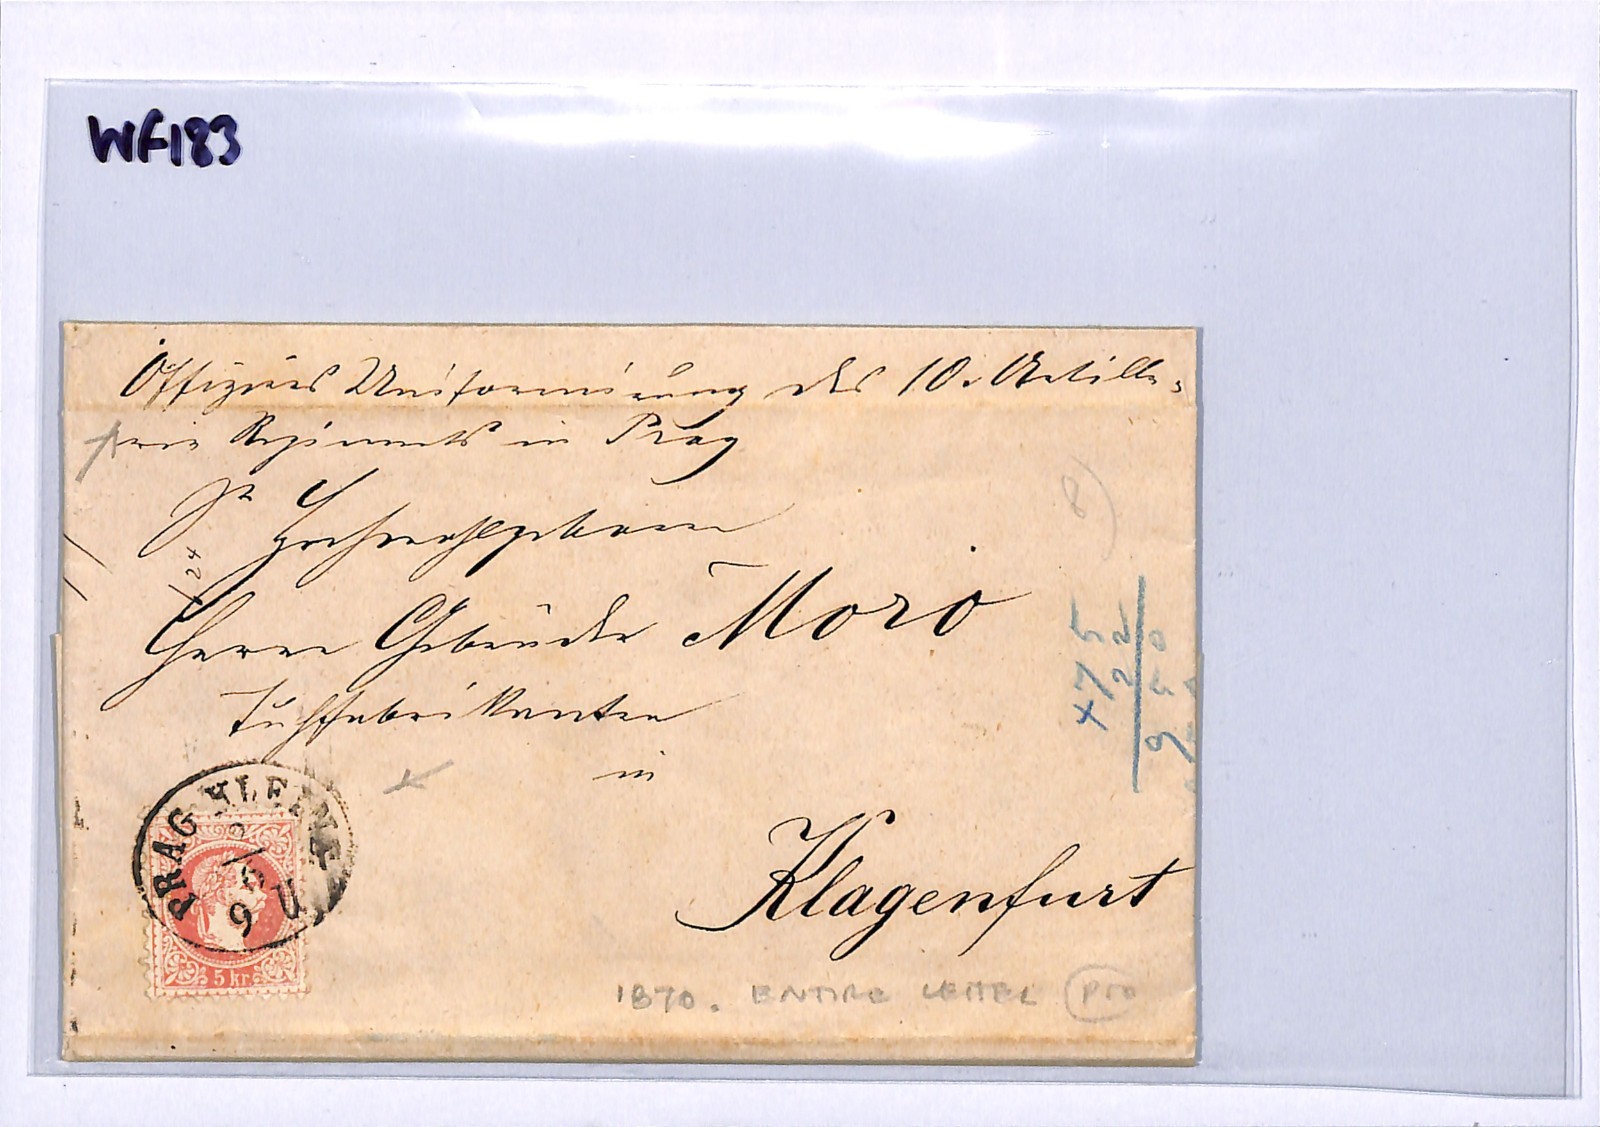 WF183
Offiziers Uniformirung des 10. Artille-
rie Regiments in Prag
Sr Hochwohlgeboren
24
Herrn Gebrüder Moro
Tuchfabrikanten
in
Klagenfurt
PRAG KLEINS
5 kr.
1870. ENTIRE LETTER